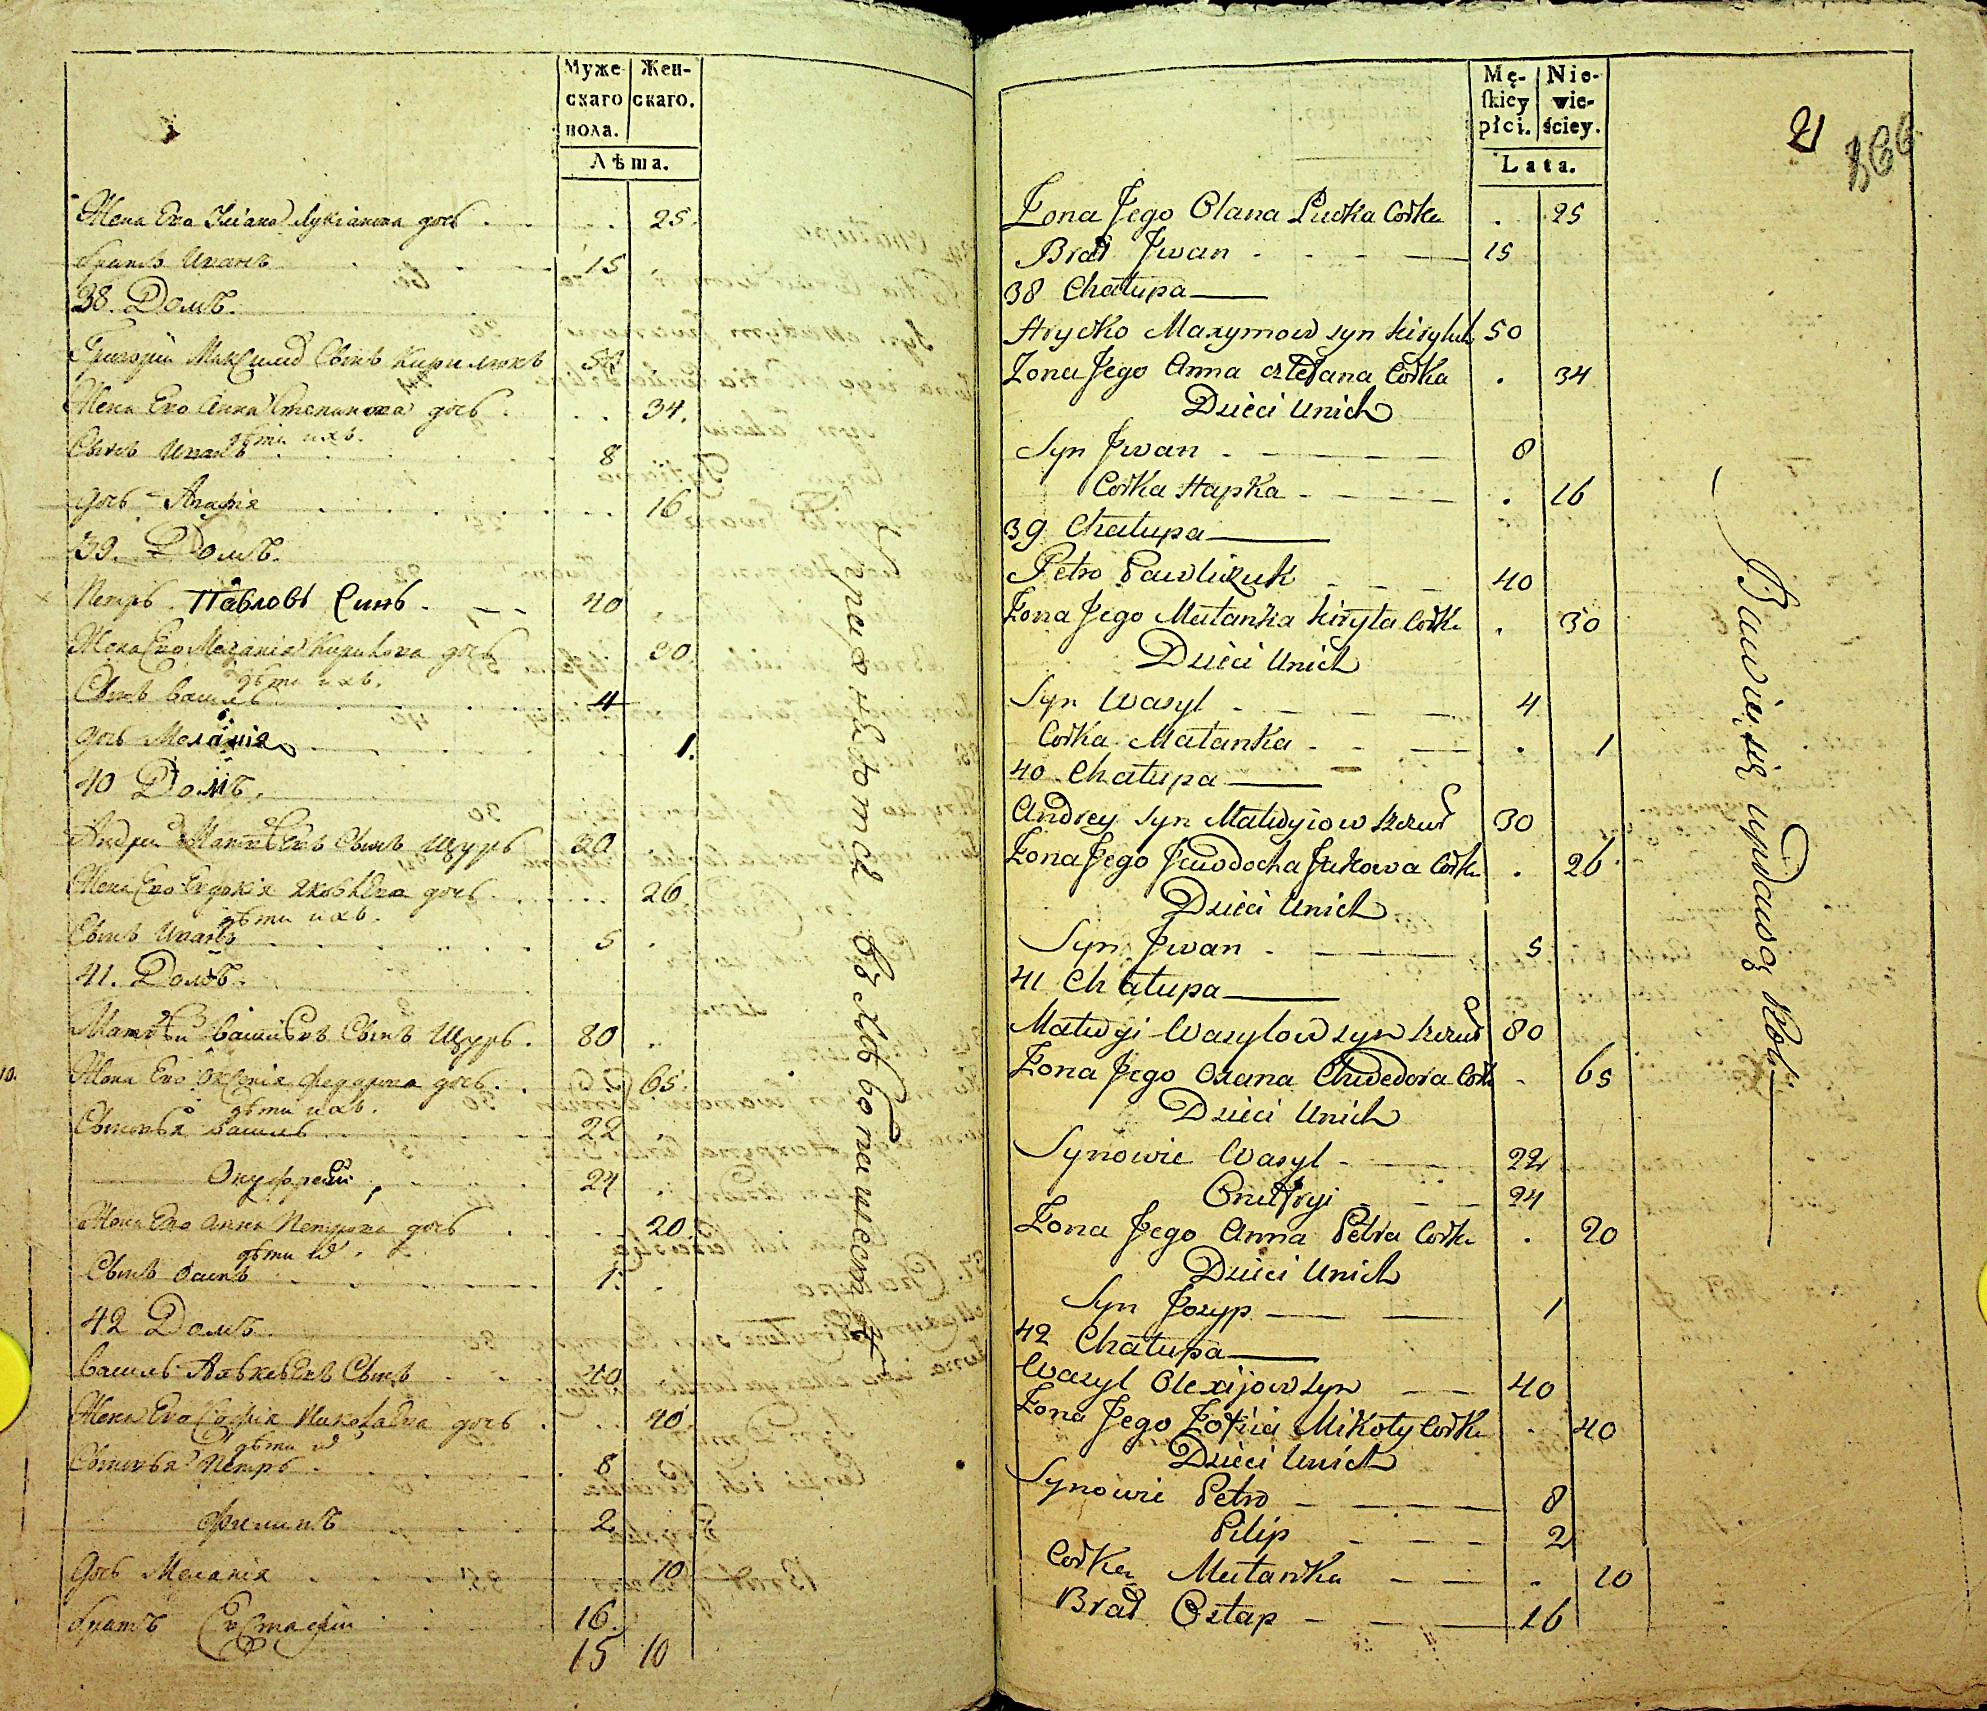 Муже-
скаго
пола.
Жен-
скаго.
Лѣта.
Жена Его Улiана Лукiанова дочь 25.
братъ Иванъ 15
38. Домъ.
Григорiй Максимовъ Сынъ Кирилюкъ 50
Жена Его Анна Степанова дочь 34.
дѣти ихъ.
Сынъ Иванъ 8
дочь Агафiя 16
39. Домъ.
Петръ Павловъ Синъ 40
Жена Его Меланiя Кирилова дочь 30.
дѣти ихъ.
Сынъ василь 4
дочь Меланiя 1.
40 Домъ.
Андрей Матвѣевъ Сынъ Щуръ 30
Жена Его Евдокiя Яковлева дочь 26
дѣти ихъ.
Сынъ Иванъ 5
41. Домъ.
Матвѣй василевъ Сынъ Щуръ. 80
Жена Его Оксенiя федорова дочь. 65.
дѣти ихъ.
Сыновья василь 22
Онуфрей 24
Жена Его Анна Петрова дочь 20.
дѣти их.
Сынъ Осипъ 1.
42 Домъ.
василь Алексѣевъ Сынъ 40
Жена Его Софiя Николаева дочь 40.
дѣти их
Сыновья Петръ 8
филипъ 2.
дочь Меланiя 10
братъ Евстафiй 16.
15 10
Упражняются въ хлѣбопашествѣ
Mę-
ſkiey
płci.
Nie-
wie-
ściey.
Lata.
21
366
Żona Jego Olana Lucka Corka . 25
Brat Jwan 15
38 Chałupa
Hryćko Maxymow syn kiryluk 50
Żona Jego Anna sztefana Corka . 34
Dzieci Unich
Syn Jwan 8
Corka Hapka . 16
39 Chałupa
Petro Pawliczuk 40
Żona Jego Małanka kiryła Corka . 30
Dzieci Unich
Syn Wasyl 4
Corka Małanka . 1
40 Chałupa
Andrey Syn Matwyiow szczur 30
Żona Jego Jewdocha Jakowa Corka . 26
Dzieci Unich
Syn Jwan 5
41 Chałupa
Matwyi Wasylow syn szczur 80
Żona Jego Oxana Chwedora Corka . 65
Dzieci Unich
Synowie Wasyl 22
Onufryi 24
Żona Jego Anna Petra Corka . 20
Dzieci Unich
Syn Jozyp 1
42 Chałupa
Wasyl Olexijow syn 40
Żona Jego Zofiia Mikoły Corka . 40
Dzieci Unich
Synowie Petro 8
Pilip 2
Corka Małanka . 10
Brat Ostap 16
Bawią się uprawą Roli